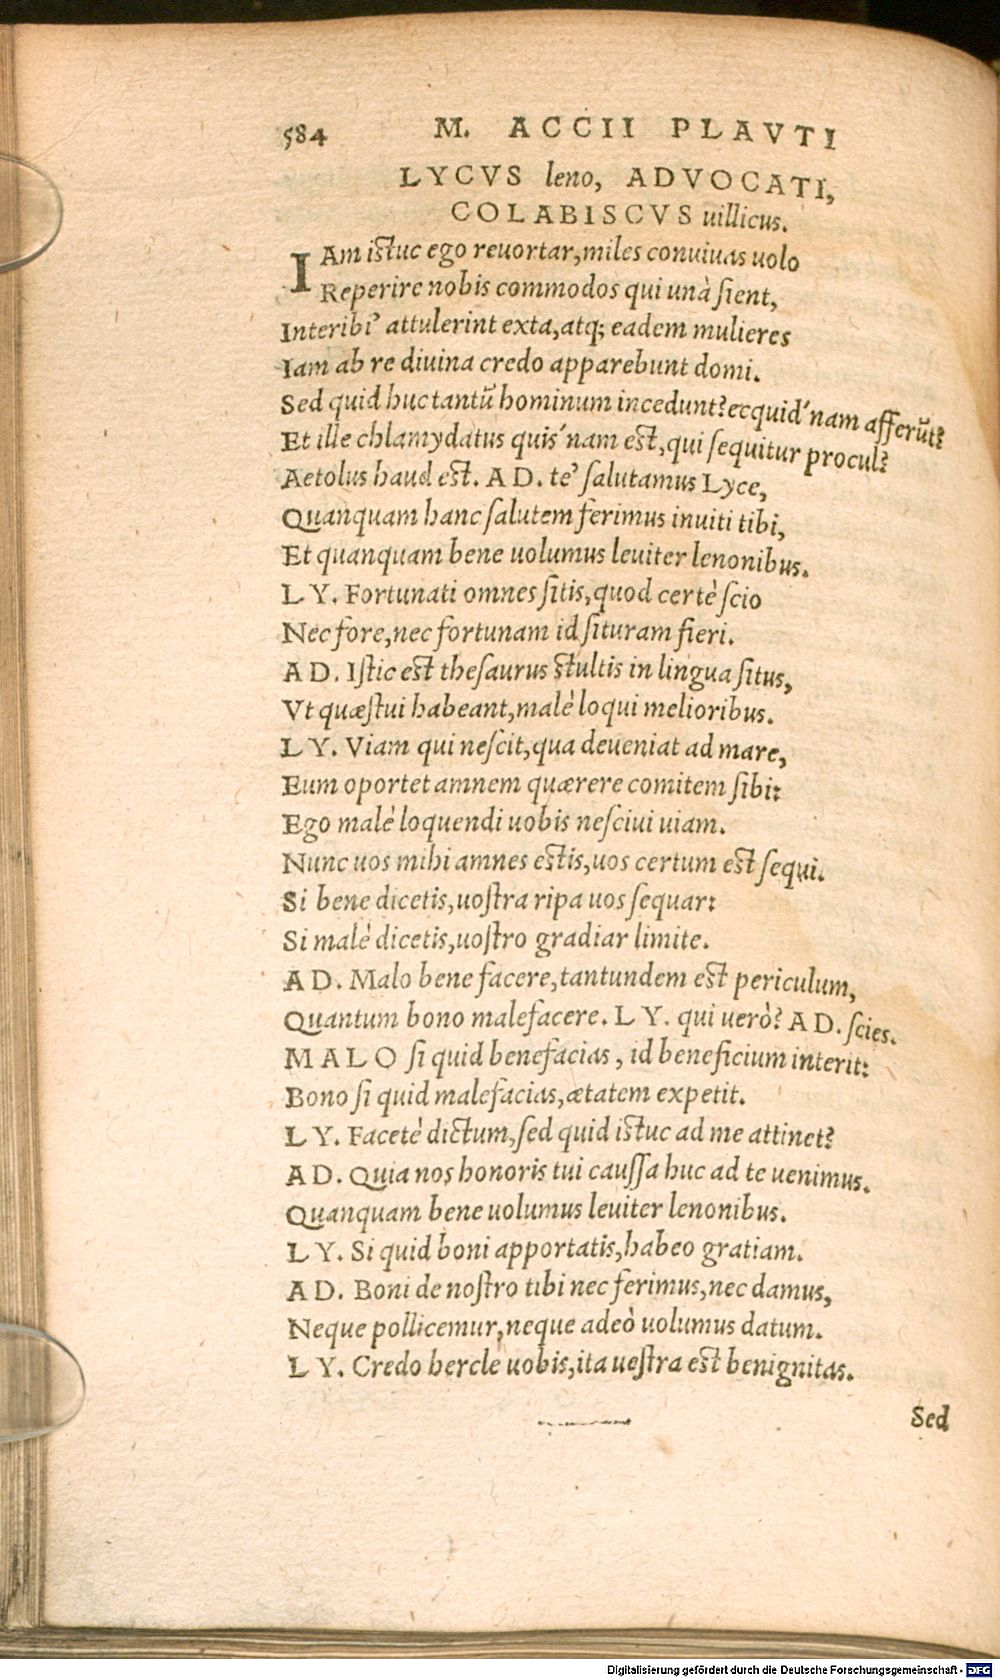 584 M. ACCII PLAVTI
LYCVS leno, ADVOCATI,
COLABISCVS uillicus.
IAm istuc ego reuortar, miles conuiuas uolo
Reperire nobis commodos qui unà sient,
Interibi’ attulerint exta, atq; eadem mulieres
Iam ab re diuina credo apparebunt domi.
Sed quid huc tantū hominum incedunt? ecquid´nam afferūt?
Et ille chlamydatus quis´nam est, qui sequitur procul?
Aetolus haud est. AD. te’ salutamus Lyce,
Quanquam hanc salutem ferimus inuiti tibi,
Et quanquam bene uolumus leuiter lenonibus.
LY. Fortunati omnes sitis, quod certè scio
Nec fore, nec fortunam id situram fieri.
AD. Istic est thesaurus stultis in lingua situs,
Vt quæstui habeant, malè loqui melioribus.
LY. Viam qui nescit, qua deueniat ad mare,
Eum oportet amnem quærere comitem sibi:
Ego malè loquendi uobis nesciui uiam.
Nunc uos mihi amnes estis, uos certum est sequi.
Si bene dicetis, uostra ripa uos sequar:
Si malè dicetis, uostro gradiar limite.
AD. Malo bene facere, tantundem est periculum,
Quantum bono malefacere. LY. qui uerò? AD. scies.
MALO si quid benefacias, id beneficium interit:
Bono si quid malefacias, ætatem expetit.
LY. Facetè dictum, sed quid istuc ad me attinet?
AD. Quia nos honoris tui caussa huc ad te uenimus.
Quanquam bene uolumus leuiter lenonibus.
LY. Si quid boni apportatis, habeo gratiam.
AD. Boni de nostro tibi nec ferimus, nec damus,
Neque pollicemur, neque adeò uolumus datum.
LY. Credo hercle uobis, ita uestra est benignitas.
Sed
Digitalisierung gefördert durch die Deutsche Forschungsgemeinschaft - DFG